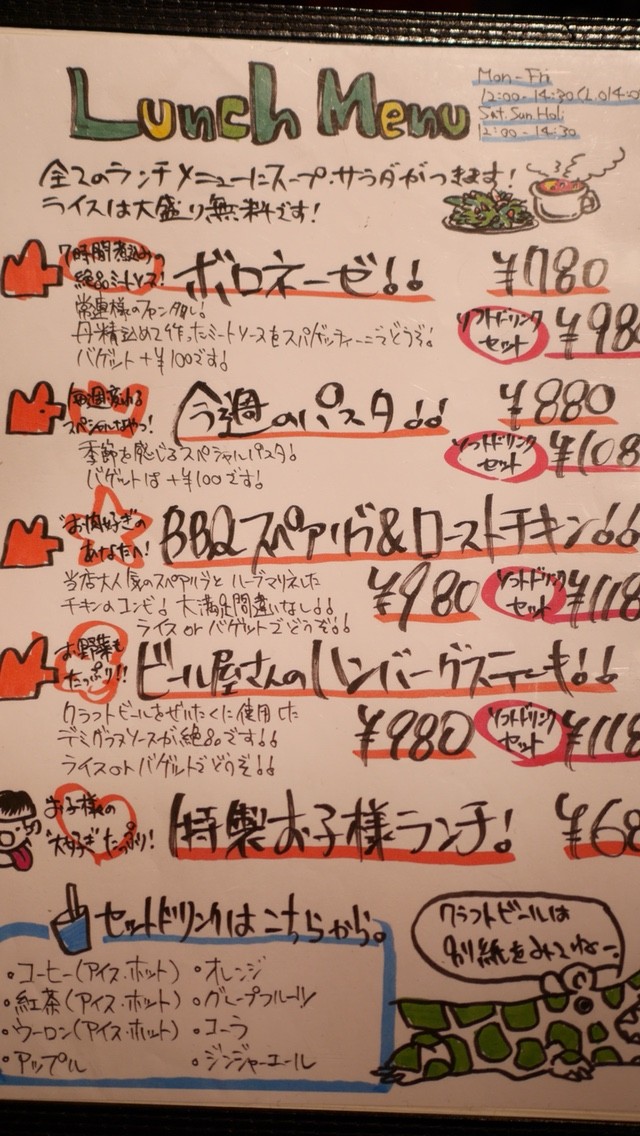 Lunch Menu
Mon-Fri
12:00-14:30(L.O14:
Sat.Sun.Holi
12:00-14:30
全てのランチメニューにスープ・サラダがつきます!
ライスは大盛り無料です!
7時間煮込みの
絶品ミートソース!
ボロネーゼ!!
¥780
常連様のファンタ多し!
丹精込めて作ったミートソースをスパゲッティーニでどうぞ!
バゲット+¥100です!
ソフトドリンク
セット
¥98
毎週変わる
スペシャルなやつ!
今週のパスタ!!
¥880
季節を感じるスペシャルパスタ!
バゲットは+¥100です!
ソフトドリンク
セット
¥108
お肉好きの
あなたへ!
BBQスペアリブ&ローストチキン!!
当店大人気のスペアリブとハーブマリネした
チキンのコンビ!大満足間違いなし!!
ライスorバゲットでどうぞ!!
¥980
ソフトドリンク
セット
¥118
お野菜も
たっぷり!!
ビール屋さんのハンバーグステーキ!!
クラフトビールをぜいたくに使用した
デミグラスソースが絶品です!!
ライスorバゲットでどうぞ!!
¥980
ソフトドリンク
セット
¥118
お子様の
"大好き"たっぷり!
特製お子様ランチ!
¥68
セットドリンクはこちらから。
・コーヒー(アイス・ホット)
・オレンジ
・紅茶(アイス・ホット)
・グレープフルーツ
・ウーロン(アイス・ホット)
・コーラ
・アップル
・ジンジャーエール
クラフトビールは
別紙をみてねー。